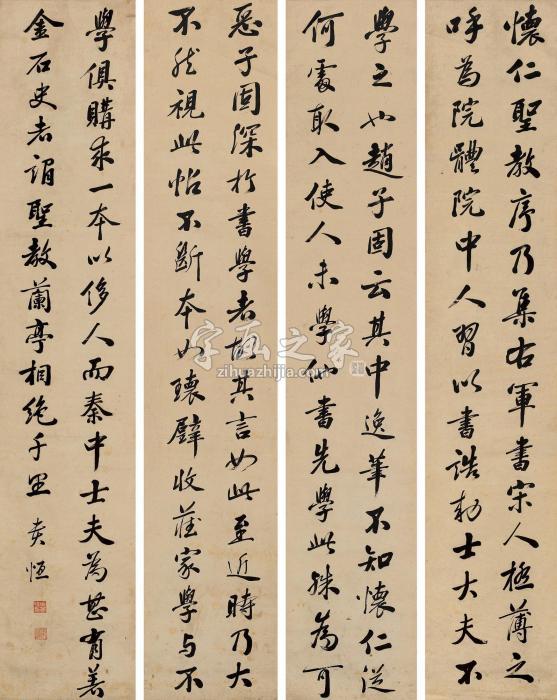 懷仁聖教序乃集右軍書宋人極薄之
呼為院體院中人習以書誥勅士大夫不
學之也趙子固云其中逸筆不知懷仁從
何處取入使人未學他書先學此殊為可
惡子固深於書學者故其言如此至近時乃大
不然視此帖不斷本如瓌璧收藏家學與不
學俱購求一本以侈人而秦中士夫為甚有著
金石史者謂聖教蘭亭相絕千里 奕恒
字画之家
zihuazhijia.com